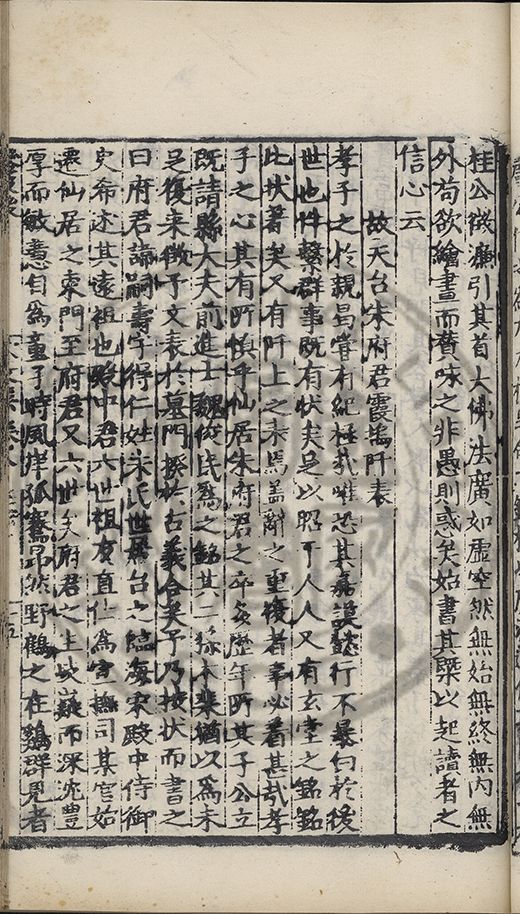 桂公徵濂引其首大佛法廣如虛空然無始無終無內無
外苟欲繪畫而贊咏之非愚則惑矣姑書其槩以起讀者之
信心云
故天台朱府君霞塢阡表
孝子之於親曷嘗有紀極哉唯恐其嘉謨懿行不暴白於後
世也件繫群事既有狀矣足以昭于人人又有玄堂之銘銘
此狀著矣又有阡上之表焉蓋辭之重復者事必著甚哉孝
子之心其有所慎乎仙居朱府君之卒矣歷年所其子公立
既請縣大夫前進士魏俊民為之銘其二孫本裴猶以為未
足復来徵予文表於墓門揆於古義合矣予乃按狀而書之
曰府君諱嗣壽字得仁姓朱氏世居台之臨海宋殿中侍御
史希述其遠祖也殿中君六世祖友直仕為宣撫司某官始
遷仙居之東門至府君又六世矣府君之生岐嶷而深沈豐
厚而敏慧自為童子時風岸孤騫昂然野鶴之在鷄群見者